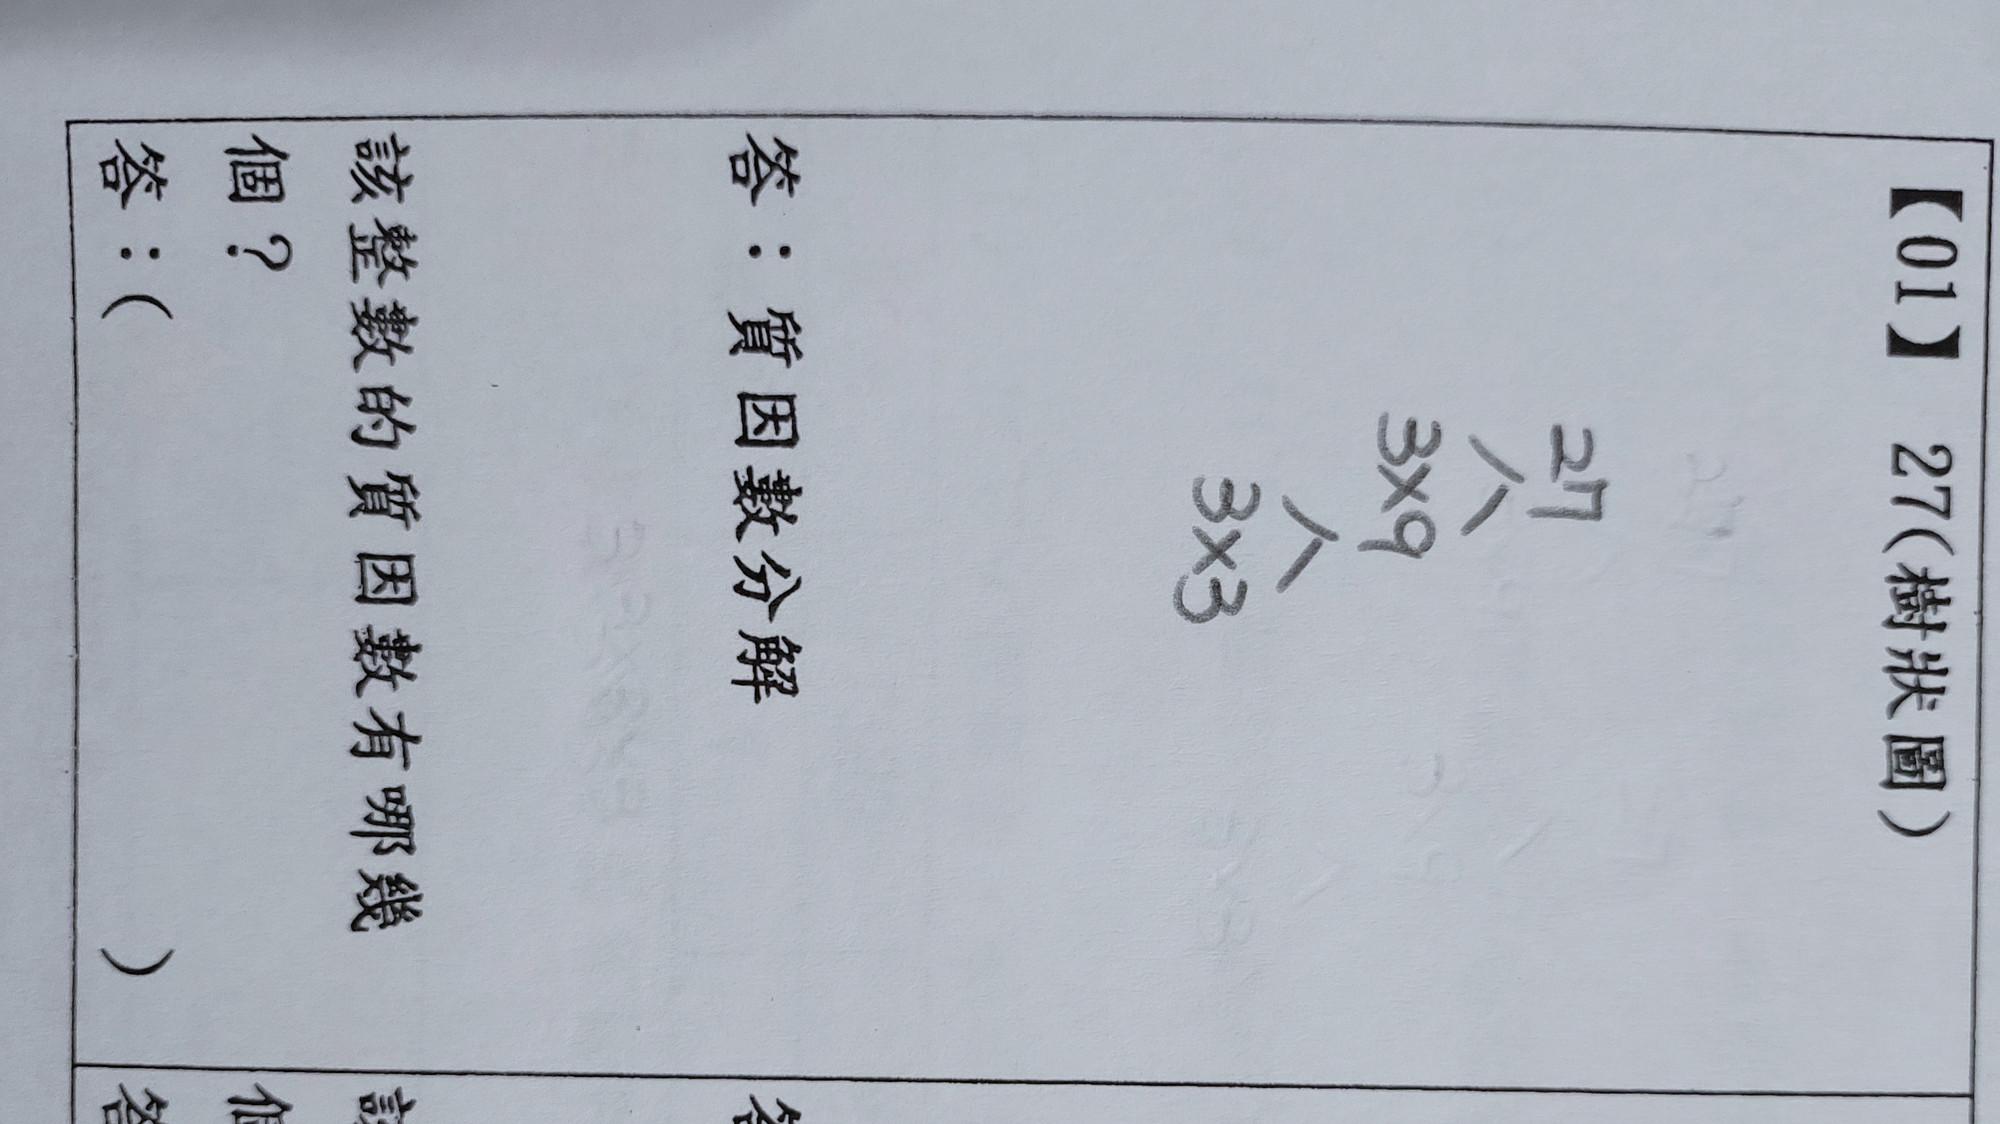 【01】 27(樹狀圖)
27
3×9
3×3
答：質因數分解
該整數的質因數有哪幾
個？
答：(          )